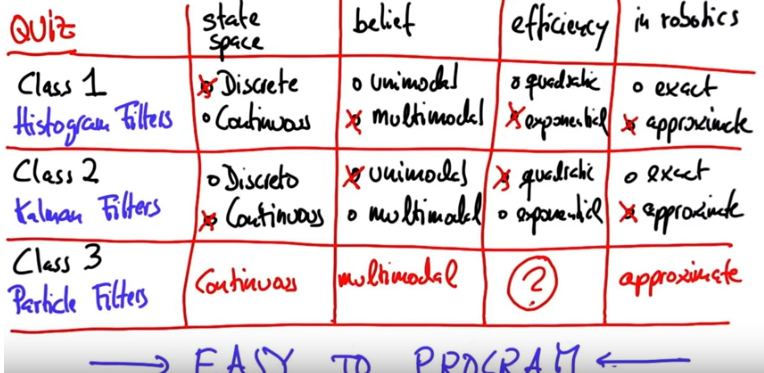 QUIZ
state space
belief
efficiency
in robotics
Class 1
Histogram Filters
Discrete
Continuous
unimodal
multimodal
quadratic
exponential
exact
approximate
Class 2
Kalman Filters
Discrete
Continuous
unimodal
multimodal
quadratic
exponential
exact
approximate
Class 3
Particle Filters
Continuous
multimodal
?
approximate
EASY TO PROGRAM